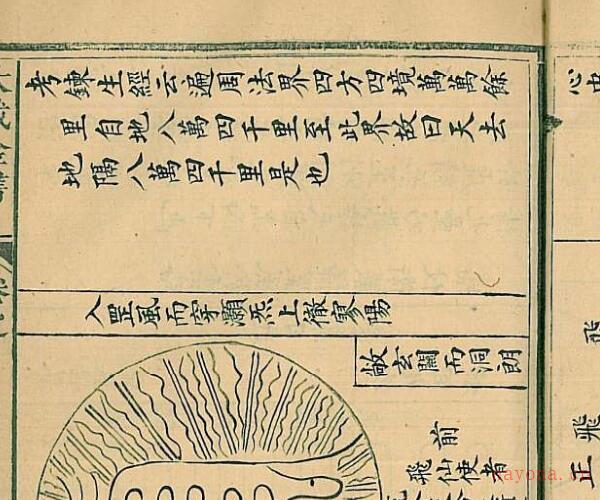 考鍊生經云遍周法界四方四境萬萬餘
里自地八萬四千里至此界故曰天去
地隔八萬四千里是也
入罡風而穿灝炁上徹寥陽
敞玄關而洞朗
前
飛仙使者
心
飛
正飛
nayona.cn